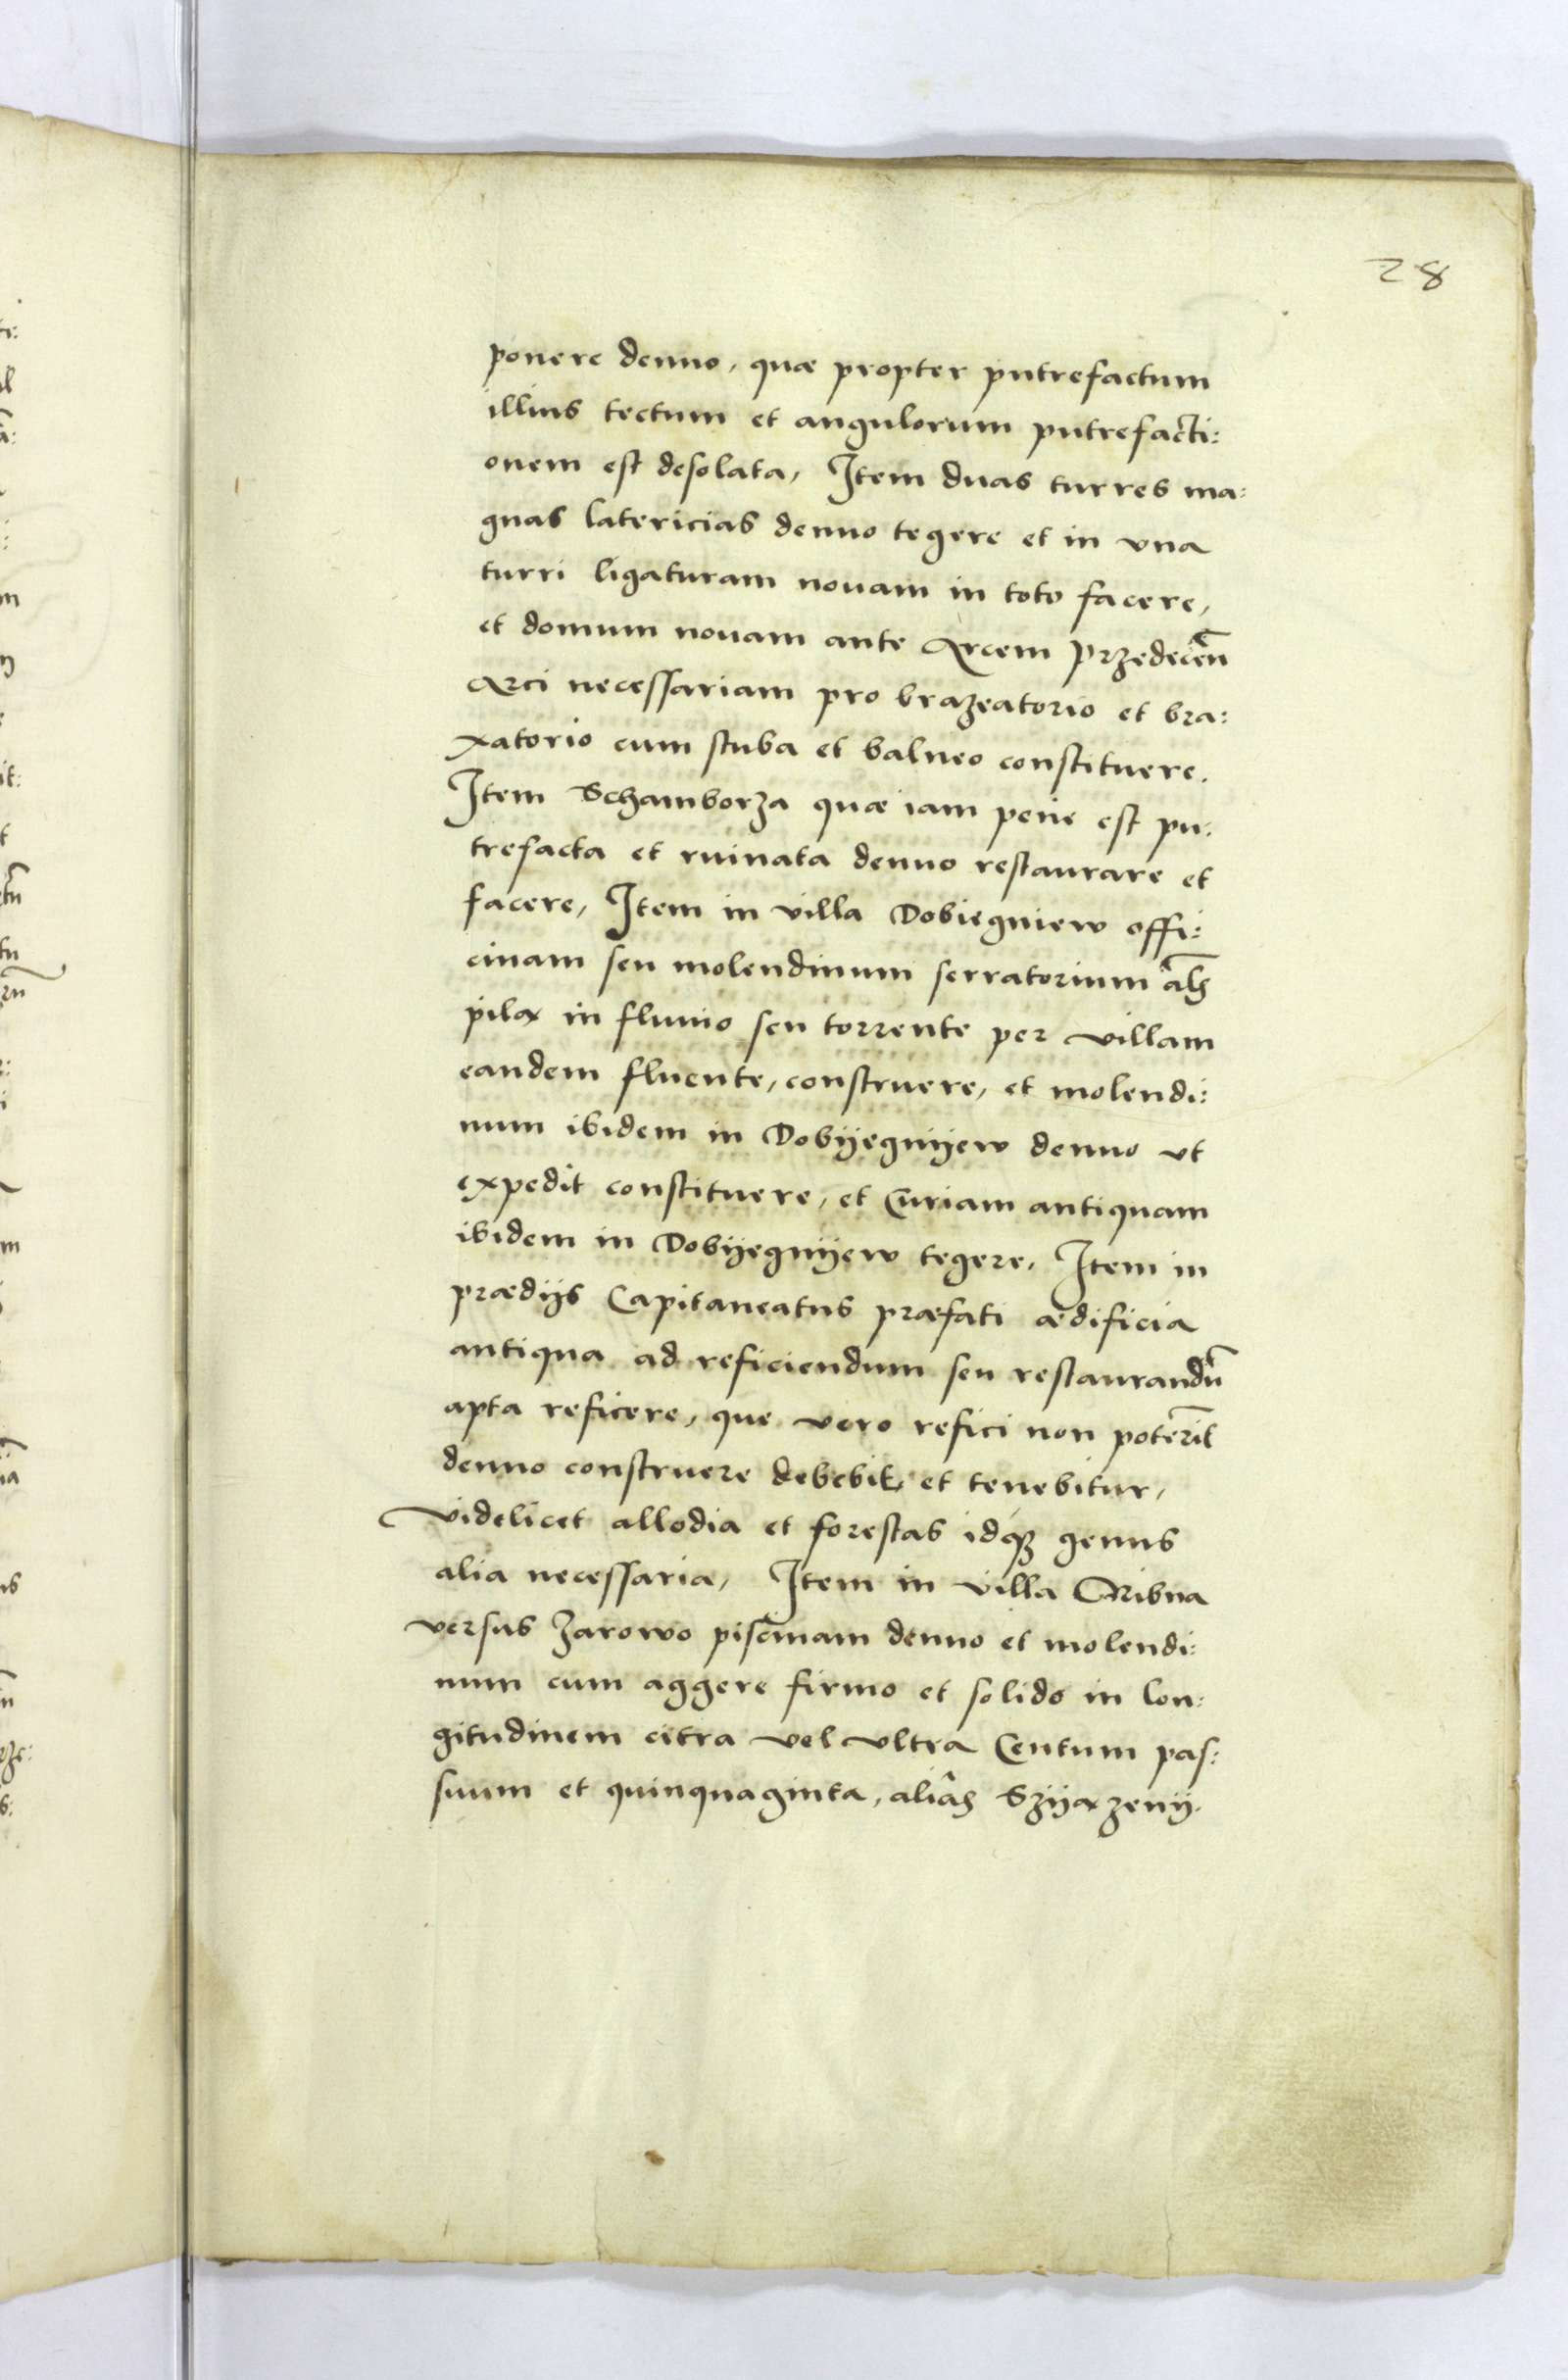 28
ponere denuo, quæ propter putrefactum
illius tectum et angulorum putrefacti:
onem est desolata, Item duas turres ma:
gnas latericias denuo tegere et in vna
turri ligaturam nouam in toto facere,
et domum nouam ante Arcem Przedecen̄
Arci necessariam pro brazeatorio et bra:
xatorio cum stuba et balneo constituere.
Item Schamborza quæ iam pene est pu:
trefacta et ruinata denuo restaurare et
facere, Item in villa Dobiegniew offi:
cinam seu molendinum serratorium al̄s
pila in fluuio seu torrente per villam
eandem fluente, construere, et molendi:
num ibidem in Dobyegnyew denuo vt
expedit constituere, et Curiam antiquam
ibidem in Dobyegnyew tegere. Item in
prædijs Capitaneatus præfati ædificia
antiqua ad reficiendum seu restaurandū
apta reficere, que vero refici non poterit̄
denuo construere debebit, et tenebitur,
videlicet allodia et forestas idq̢ genus
alia necessaria, Item in villa Ribna
versus Zarowo piscinam denuo et molendi:
num cum aggere firmo et solido in lon:
gitudinem citra vel vltra Centum pas:
suum et quinquaginta, aliâs Szyazenÿ.